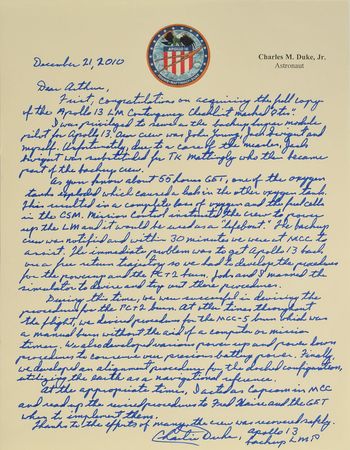 Charles M. Duke, Jr.
Astronaut
December 21, 2010
APOLLO 16
Dear Arthur,
First, congratulations on acquiring the full copy
of the Apollo 13 LM Contingency Checklist marked
I was privileged to serve as the backup lunar module
pilot for Apollo 13. Our crew was John Young, Jack Swigert and
myself. Unfortunately, due to a case of the measles, Jack
Swigert was substituted for TK Mattingly who then became
part of the backup crew.
As you know about 56 hours GET, one of the oxygen
tanks exploded which caused a leak in the other oxygen tank.
This resulted in a complete loss of oxygen and the fuel cells
in the CSM. Mission Control instructed the crew to power
up the LM and it would be used as a "lifeboat". The backup
crew was notified and within 30 minutes we were at MCC to
assist. The immediate problem was to get Apollo 13 back
on a free return trajectory so we had to develop the procedure
for the powerup and the PC+2 burn. John and I manned the
simulator to devise and try out these procedures.
During this time, we were successful in devising the
procedures for the PC+2 burn. At other times throughout
the flight, we devised procedures for the MCC-5 burn which was
a manual burn without the aid of a computer or mission
timer. We also developed various power up and power down
procedures to conserve our precious battery power. Finally
we developed an alignment procedure for the docked configuration,
utilizing the earth as a navigational reference.
At the appropriate times, I acted as Capcom in MCC
and read up the revised procedures to Fred Haise and the GET
when to implement them.
Thanks to the efforts of many, the crew was recovered safely.
Charlie Duke, Apollo 13
backup LMP